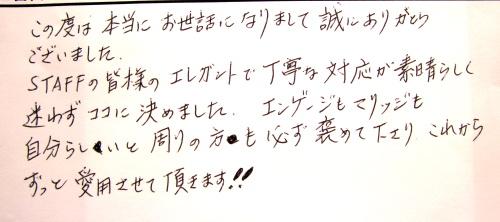 この度は本当にお世話になりまして誠にありがとう
ございました。
STAFFの皆様のエレガントで丁寧な対応が素晴らしく
迷わずココに決めました。エンゲージもマリッジも
自分らしいと周りの方も必ず褒めて下さり これから
ずっと愛用させて頂きます!!